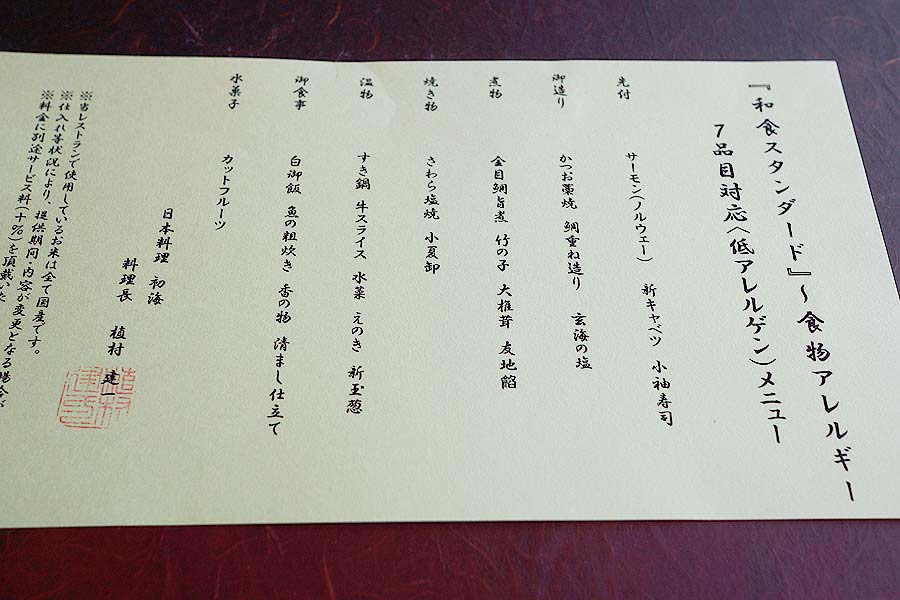 『和食スタンダード』~食物アレルギー
7品目対応<低アレルゲン>メニュー
先付 サーモン(ノルウェー) 新キャベツ 小袖寿司
御造り かつお藁焼 鯛重ね造り 玄海の塩
煮物 金目鯛旨煮 竹の子 大椎茸 友地餡
焼き物 さわら塩焼 小夏卸
温物 すき鍋 牛スライス 水菜 えのき 新玉葱
御食事 白御飯 魚の粗炊き 香の物 清まし仕立て
水菓子 カットフルーツ
日本料理 初海
料理長 植村 建一
※当レストランで使用しているお米は全て国産です。
※仕入れ等状況により、提供期間・内容が変更となる場合が
※料金に別途サービス料(十%)を頂戴いた